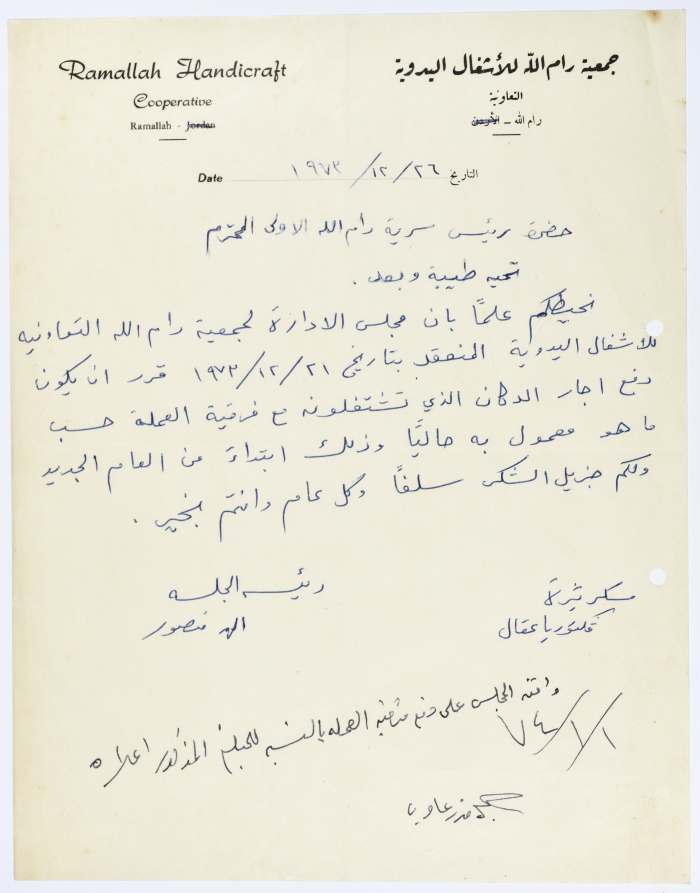 Ramallah Handicraft
Cooperative
Ramallah - Jordan
جمعية رام الله للأشغال اليدوية
التعاونية
رام الله - الأردن
Date ١٩٧٣/١٢/٢٦ التاريخ
حضرة رئيس سرية رام الله الاولى المحترم
تحيه طيبة وبعد .
نحيطكم علمًا بان مجلس الادارة لجمعية رام الله التعاونيه
للاشغال اليدوية المنعقد بتاريخ ١٩٧٣/١٢/٢١ قرر ان يكون
دفع اجار الدكان الذي تشتغلونه مع فرقية العملة حسب
ما هو معمول به حاليًا وذلك ابتداءً من العام الجديد
ولكم جزيل الشكر سلفًا وكل عام وانتم بخير .
سكرتيرة
فكتوريا عقال
رئيسه الجلسه
منصور
وافق المجلس على دفع فرقية العمله بالنسبه للمبلغ المذكور اعلاه
٧٤/١/١